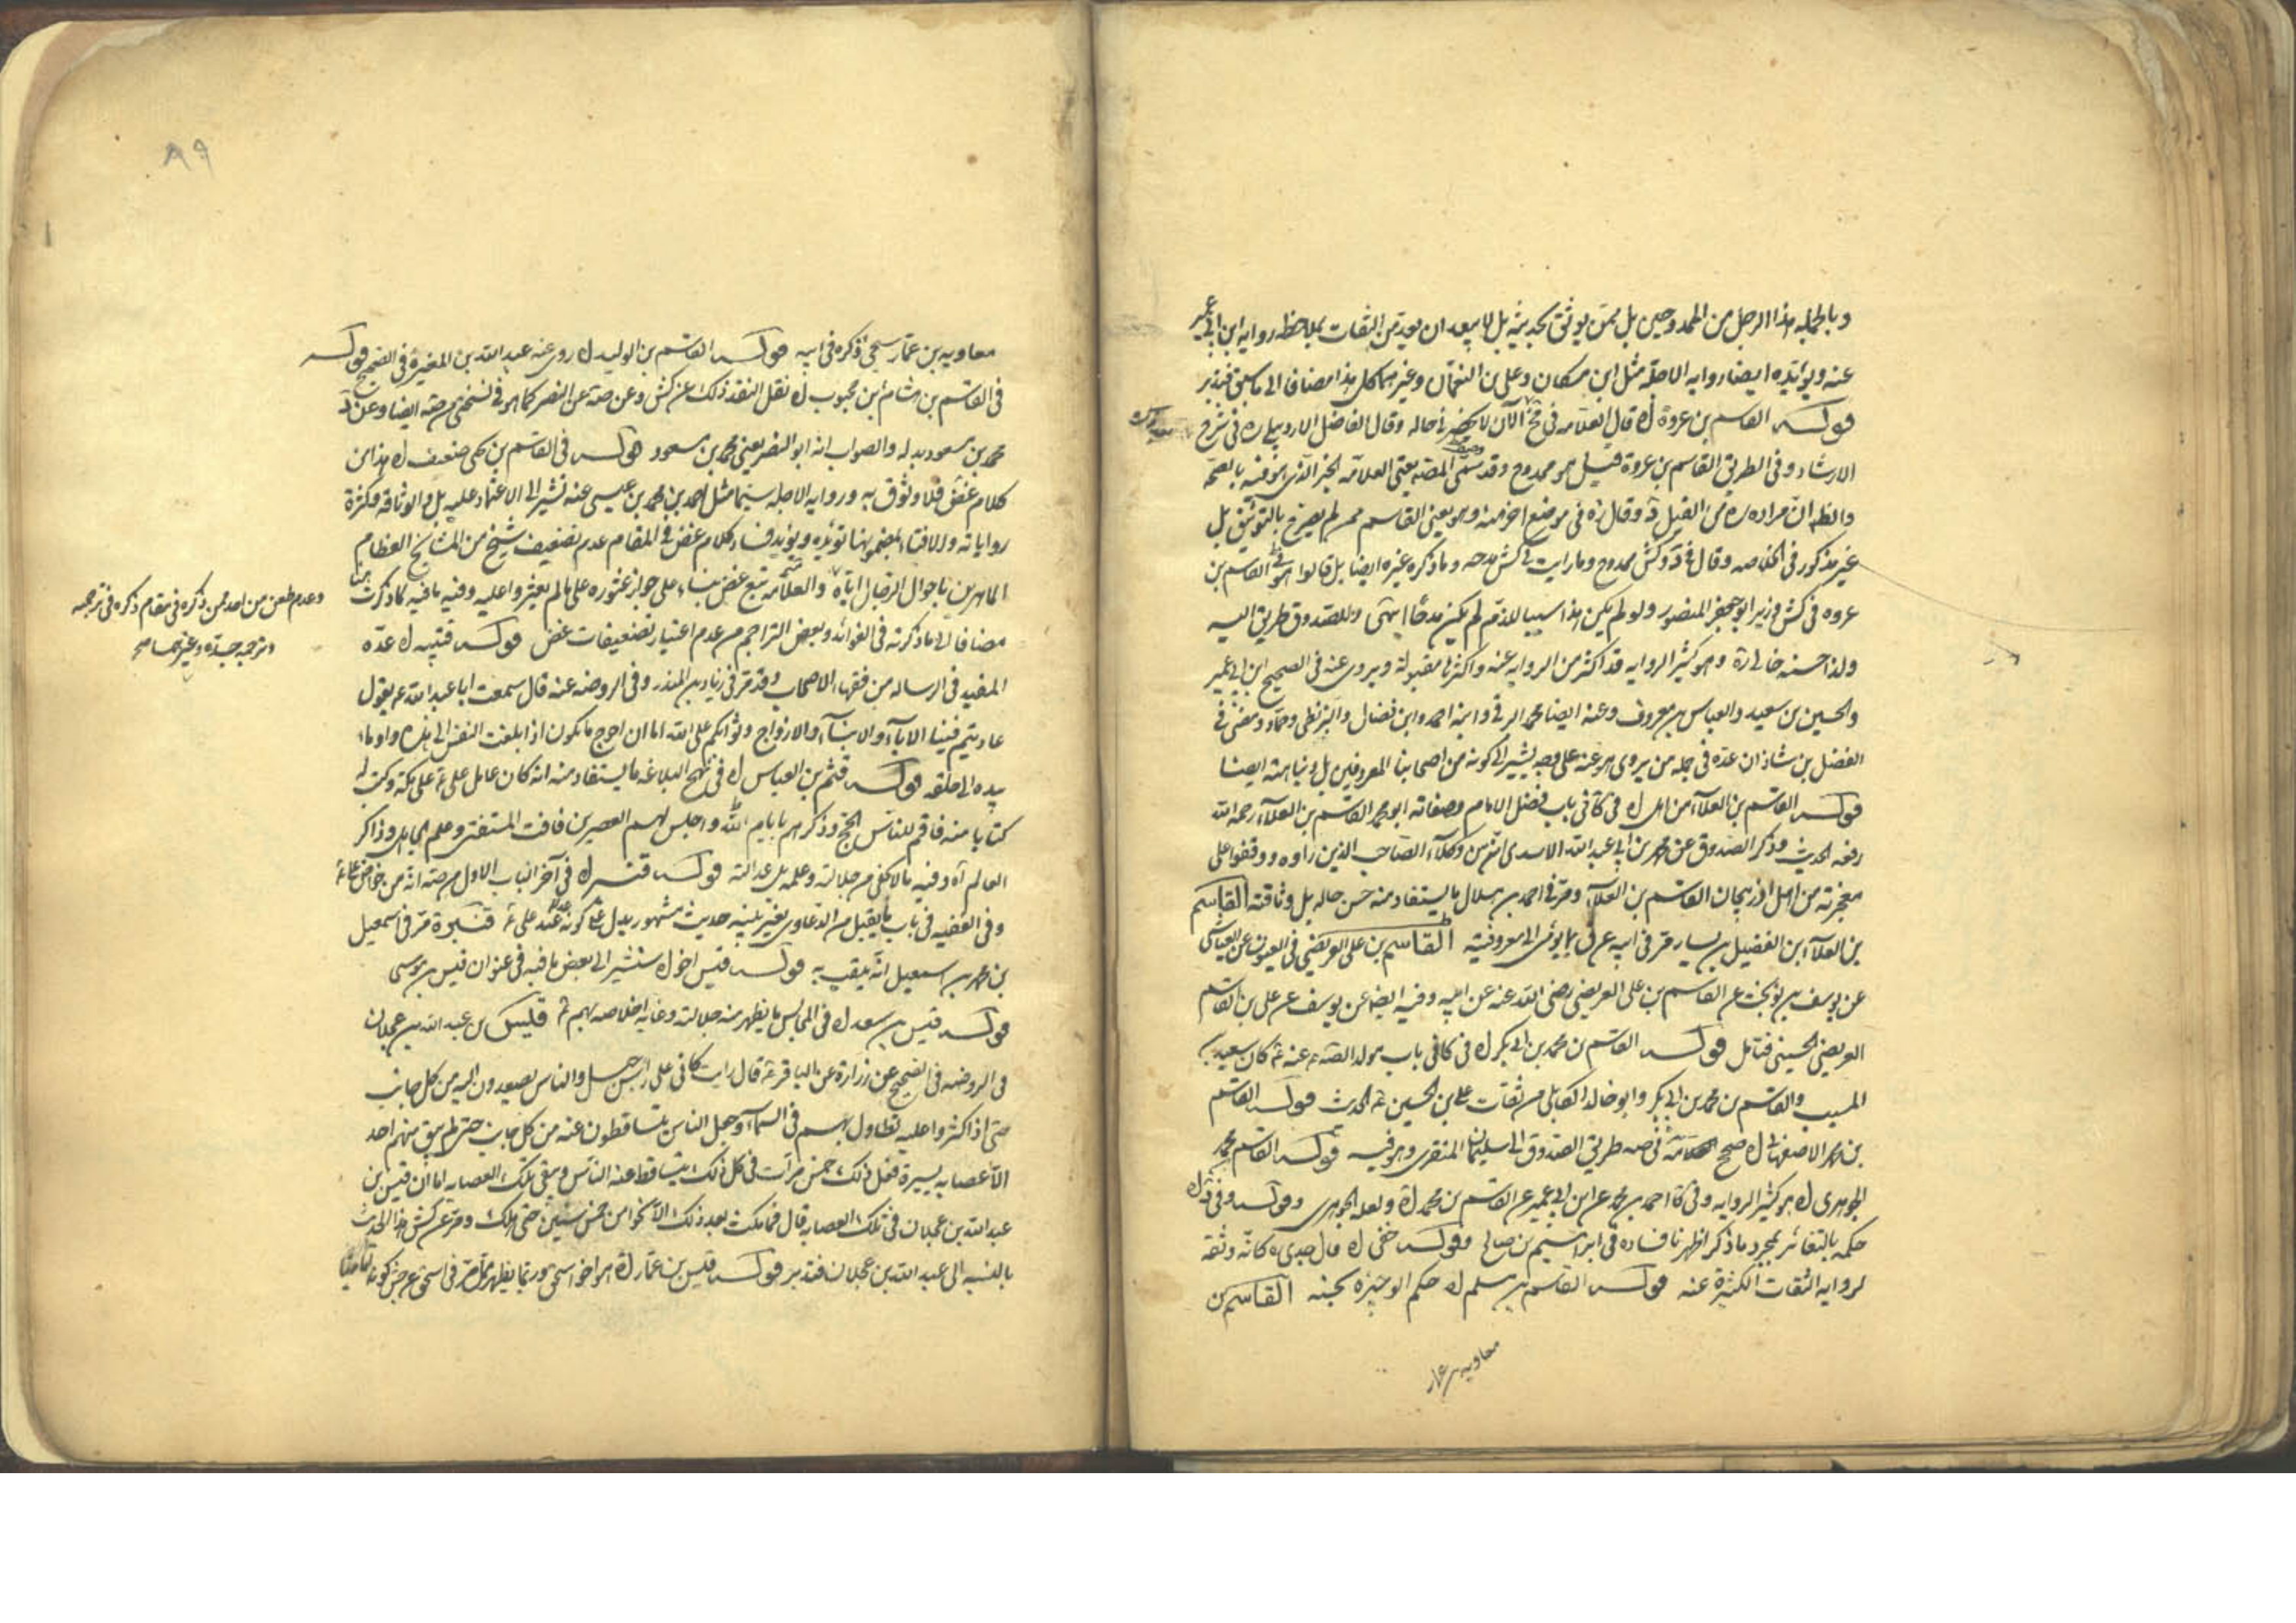 وبالجمله هذا الرجل من الممدوحين بل ممن يوثق بحديثه بل لا يبعد ان يعد من الثقات بملاحظه روايه ابن ابى عمير
عنه ويؤيده ايضا روايه الاجلة مثل ابن مسكان وعلى بن النعمان وغيرهما كل هذا مضافا الى ما سبق فتدبر
قوله القاسم بن عروة اه قال العلامه فى الآن لا يحضرنى حاله وقال الفاضل الاردبيلى ره فى شرح
الارشاد وفى الطريق القاسم بن عروة قيل هو ممدوح وقد سمى المصنه يعنى العلامه الخبر الذى هو فيه بالصحة
والظه ان مراده ره من القيل د وقال ره فى موضع اخر منه وهو يعنى القاسم ممن لم يصرح بالتوثيق بل
غير مذكور فى الخلاصه وقال فى د وكش ممدوح وما رايت فى كش مدحه وما ذكره غيره ايضا بل قالوا القاسم بن
عروه فى كش وزير ابو جعفر المنصور ولو لم يكن هذا سببا للذم لم يكن مدحا انتهى وللصدوق طريق اليه
ولذا حسنه خالى ره وهو كثير الروايه قد اكثر من الروايه عنه واكثرها مقبولة ويروى عنه فى الصحيح ابن ابى عمير
والحسين بن سعيد والعباس بن معروف وعنه ايضا محمد البرقى وابنه احمد وابن فضال والبزنطى وحماد ومضى فى
الفضل بن شاذان عده فى جمله من يروى هو عنه على وجه يشير الى كونه من اصحابنا المعروفين بل ونباهته ايضا
قوله القاسم بن العلآ من اهل اه فى كا فى باب فضل الامام وصفاته ابو محمد القاسم بن العلآ رحمه الله
رفعه الحديث وذكر الصدوق عن محمد بن ابى عبد الله الاسدى انه من وكلآء الصاحب الذين راوه ووقفوا على
معجزته من اهل اذربيجان القاسم بن العلآ ومر فى احمد بن هلال ما يستفاد منه حسن حاله بل وثاقته القاسم
بن العلآ ابن الفضيل بن يسار مر فى ابيه عن ق ما يومى الى معروفيته القاسم بن على العريضى فى العيون عن العياشى
عن يوسف بن عن القاسم بن على العريضى رضى الله عنه عن ابيه وفيه ايضا عن يوسف عن على بن القاسم
العريضى الحسينى فتامل قوله القاسم بن محمد بن ابى بكر اه فى كافى باب مولد الصه عنه ع كان سعيد بن
المسيب والقاسم بن محمد بن ابى بكر وابو خالد الكابلى من ثقات على بن الحسين ع الحديث قوله القاسم
بن محمد الاصفهانى اه صحح فى صه طريق الصدوق الى سليمان المنقرى وهو فيه قوله القاسم بن محمد
الجوهرى اه هو كثير الروايه وفى كا احمد بن محمد عن ابن ابى عمير عن القاسم بن محمد اه ولعله الجوهرى وقوله وفى د اه
حكمه بالتغائر بمجرد ما ذكر اظهرنا فساده فى ابراهيم بن صالح وقوله خفى اه قال جدى ه كانه وثقه
لروايه الثقات الكثيرة عنه قوله القاسم بن سلم اه حكم الوجيزه بحسنه القاسم بن
معاويه بن عمار
٨٩
معاويه بن عمار سيجئ ذكره فى ابيه قوله القاسم بن الوليد اه روى عنه عبد الله بن المغيرة فى الصحيح قوله
فى القاسم بن هشام ابن محبوب اه نقل النقد ذلك عن كش وعن صه عن النضر كما هو فى نسختى من صه ايضا وعن د
محمد بن مسعود بدله والصواب انه ابو النضر يعنى محمد بن مسعود قوله فى القاسم بن يحيى ضعيف اه هذا من
كلام غض فلا وثوق به ورواية الاجله سيما مثل احمد بن محمد بن عيسى عنه تشير الى الاعتماد عليه بل والوثاقة وكثرة
رواياته والافتاء بمضمونها تؤيده ويؤيد فساد كلام غض فى المقام عدم تضعيف شيخ من المشايخ العظام
الماهرين باحوال الرجال اياه والعلامه تبع غض بناء على جواز عثوره على ما لم يعثروا عليه وفيه ما فيه كما ذكرت هنا
وعدم طعن من احد ممن ذكره فى مقام ذكره فى ترجمته
وترجمه جده وغيرهما صح
مضافا الى ما ذكرته فى الفوائد وبعض التراجم من عدم اعتبار تضعيفات غض قوله قتيبه اه عده
المفيد فى الرساله من فقهاء الاصحاب وقد مر فى زياد بن المنذر وفى الروضه عنه قال سمعت ابا عبد الله ع يقول
عاديتم فينا الابآء والابنآء والازواج وثوابكم على الله اما ان احوج ما تكون اذا بلغت النفس الى هذه واوما
بيده الى حلقه قوله قثم بن العباس اه فى نهج البلاغه ما يستفاد منه انه كان عامل على ع على مكة وكتب له
كتابا منه فاقم للناس الحج وذكرهم بايام الله واجلس لهم العصرين فافت المستفتى وعلم الجاهل وذاكر
العالم اه وفيه ما لا يخفى من جلالته وعلمه بل عدالته قوله قنبر اه فى آخر الباب الاول من صه انه من خواص على ع
وفى الفقيه فى باب ما يقبل من الدعاوى بغير بينه حديث مشهور يدل على كونه عند على ع قنبرة مر فى اسمعيل
بن محمد بن اسمعيل انه يلقب به قوله قيس اخو اه سنشير الى بعض ما فيه فى عنوان قيس بن موسى
قوله قيس بن سعد اه فى المجالس ما يظهر منه جلالته وغايه اخلاصه بهم ع قليس بن عبد الله بن عجلان
فى الروضه فى الصحيح عن زرارة عن الباقر ع قال رايت كانى على راس جبل والناس يصعدون اليه من كل جانب
حتى اذا كثروا عليه تطاول بهم فى السمآء وجعل الناس يتساقطون عنه من كل جانب حتى لم يبق منهم احد
الا عصابه يسيرة ففعل ذلك خمس مرات فى كل ذلك يتساقط عنه الناس وبقى تلك العصابه اما ان قيس بن
عبد الله بن عجلان فى تلك العصابه قال فما مكث بعد ذلك الا نحوا من خمس سنين حتى هلك ومر عن كش هذا الحديث
بالنسبه الى عبد الله بن عجلان فتدبر قوله قيس بن عمار اه هو اخو اسحق وربما يظهر مما مر فى اسحق عن جش كونه